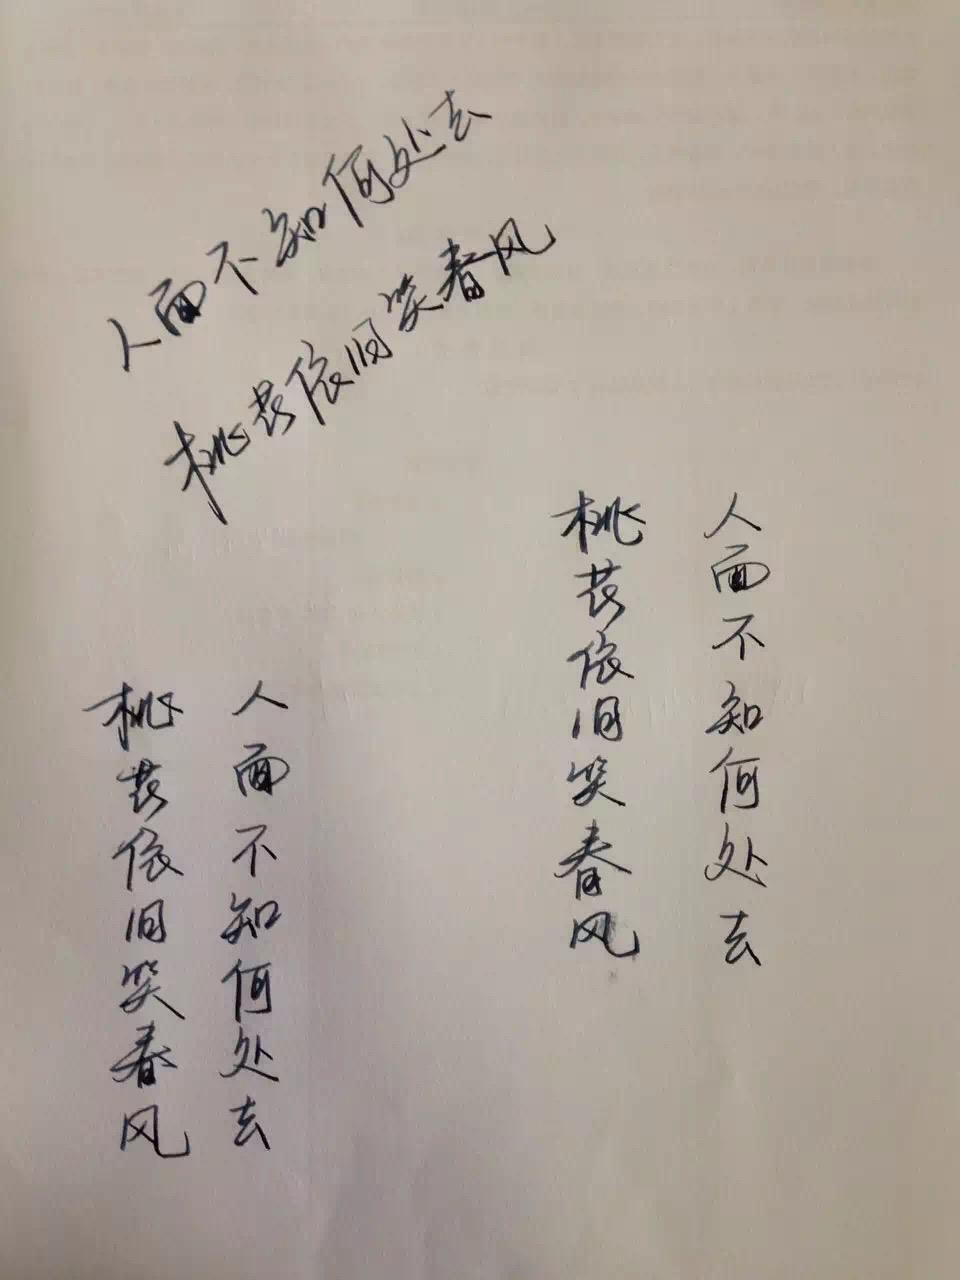 人面不知何处去
桃花依旧笑春风
人面不知何处去
桃花依旧笑春风
人面不知何处去
桃花依旧笑春风